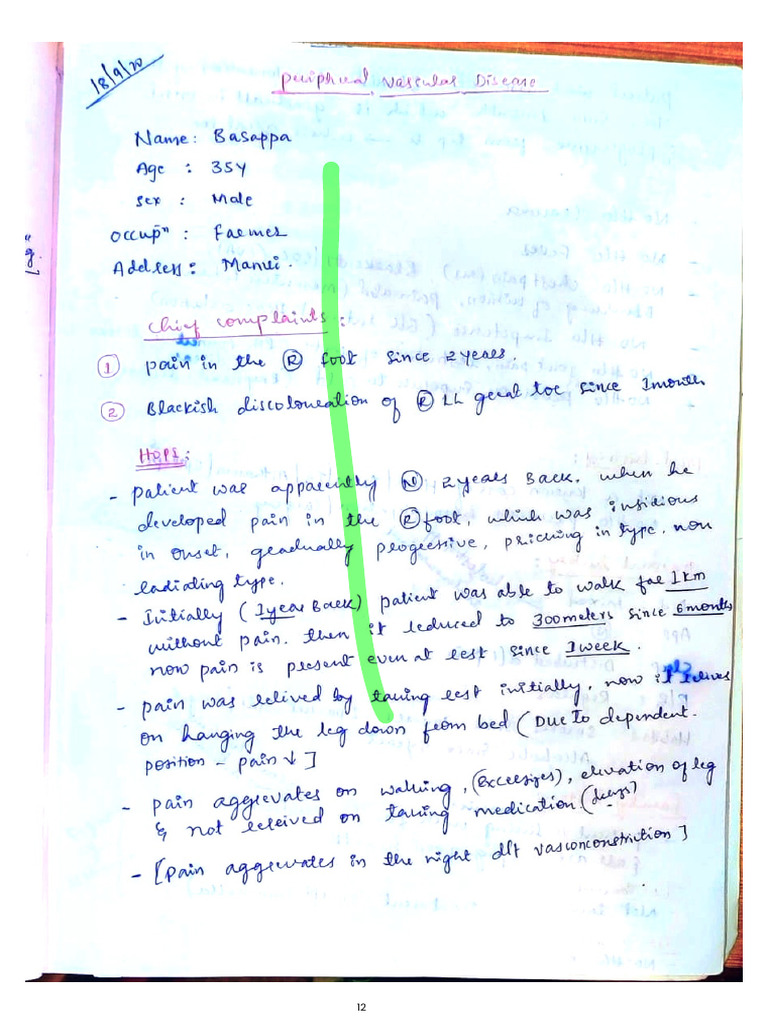 18/9/20
Peripheral Vascular Disease
Name: Basappa
Age : 35Y
Sex : Male
Occupⁿ : Farmer
Address: Manvi.
Chief complaints :
① pain in the Ⓡ foot since 2 years.
② Blackish discolouration of Ⓡ LL great toe since 1month
HOPI:
- patient was apparently Ⓝ 2 years Back. when he
developed pain in the Ⓡ foot, which was insidious
in onset, gradually progressive, pricking in type, non
radiating type.
- Initially (1year Back) patient was able to walk for 1km
without pain. then it reduced to 300meters since 6months
now pain is present even at rest since 1week.
- pain was relived by taking rest initially, now it relives
on hanging the leg down from bed (Due to dependent
position - pain ↓]
- pain aggrevates on walking, (exercises), elevation of leg
& not releived on taking medication. (drugs)
- [pain aggrevates in the night d/t vasconstriction]
12